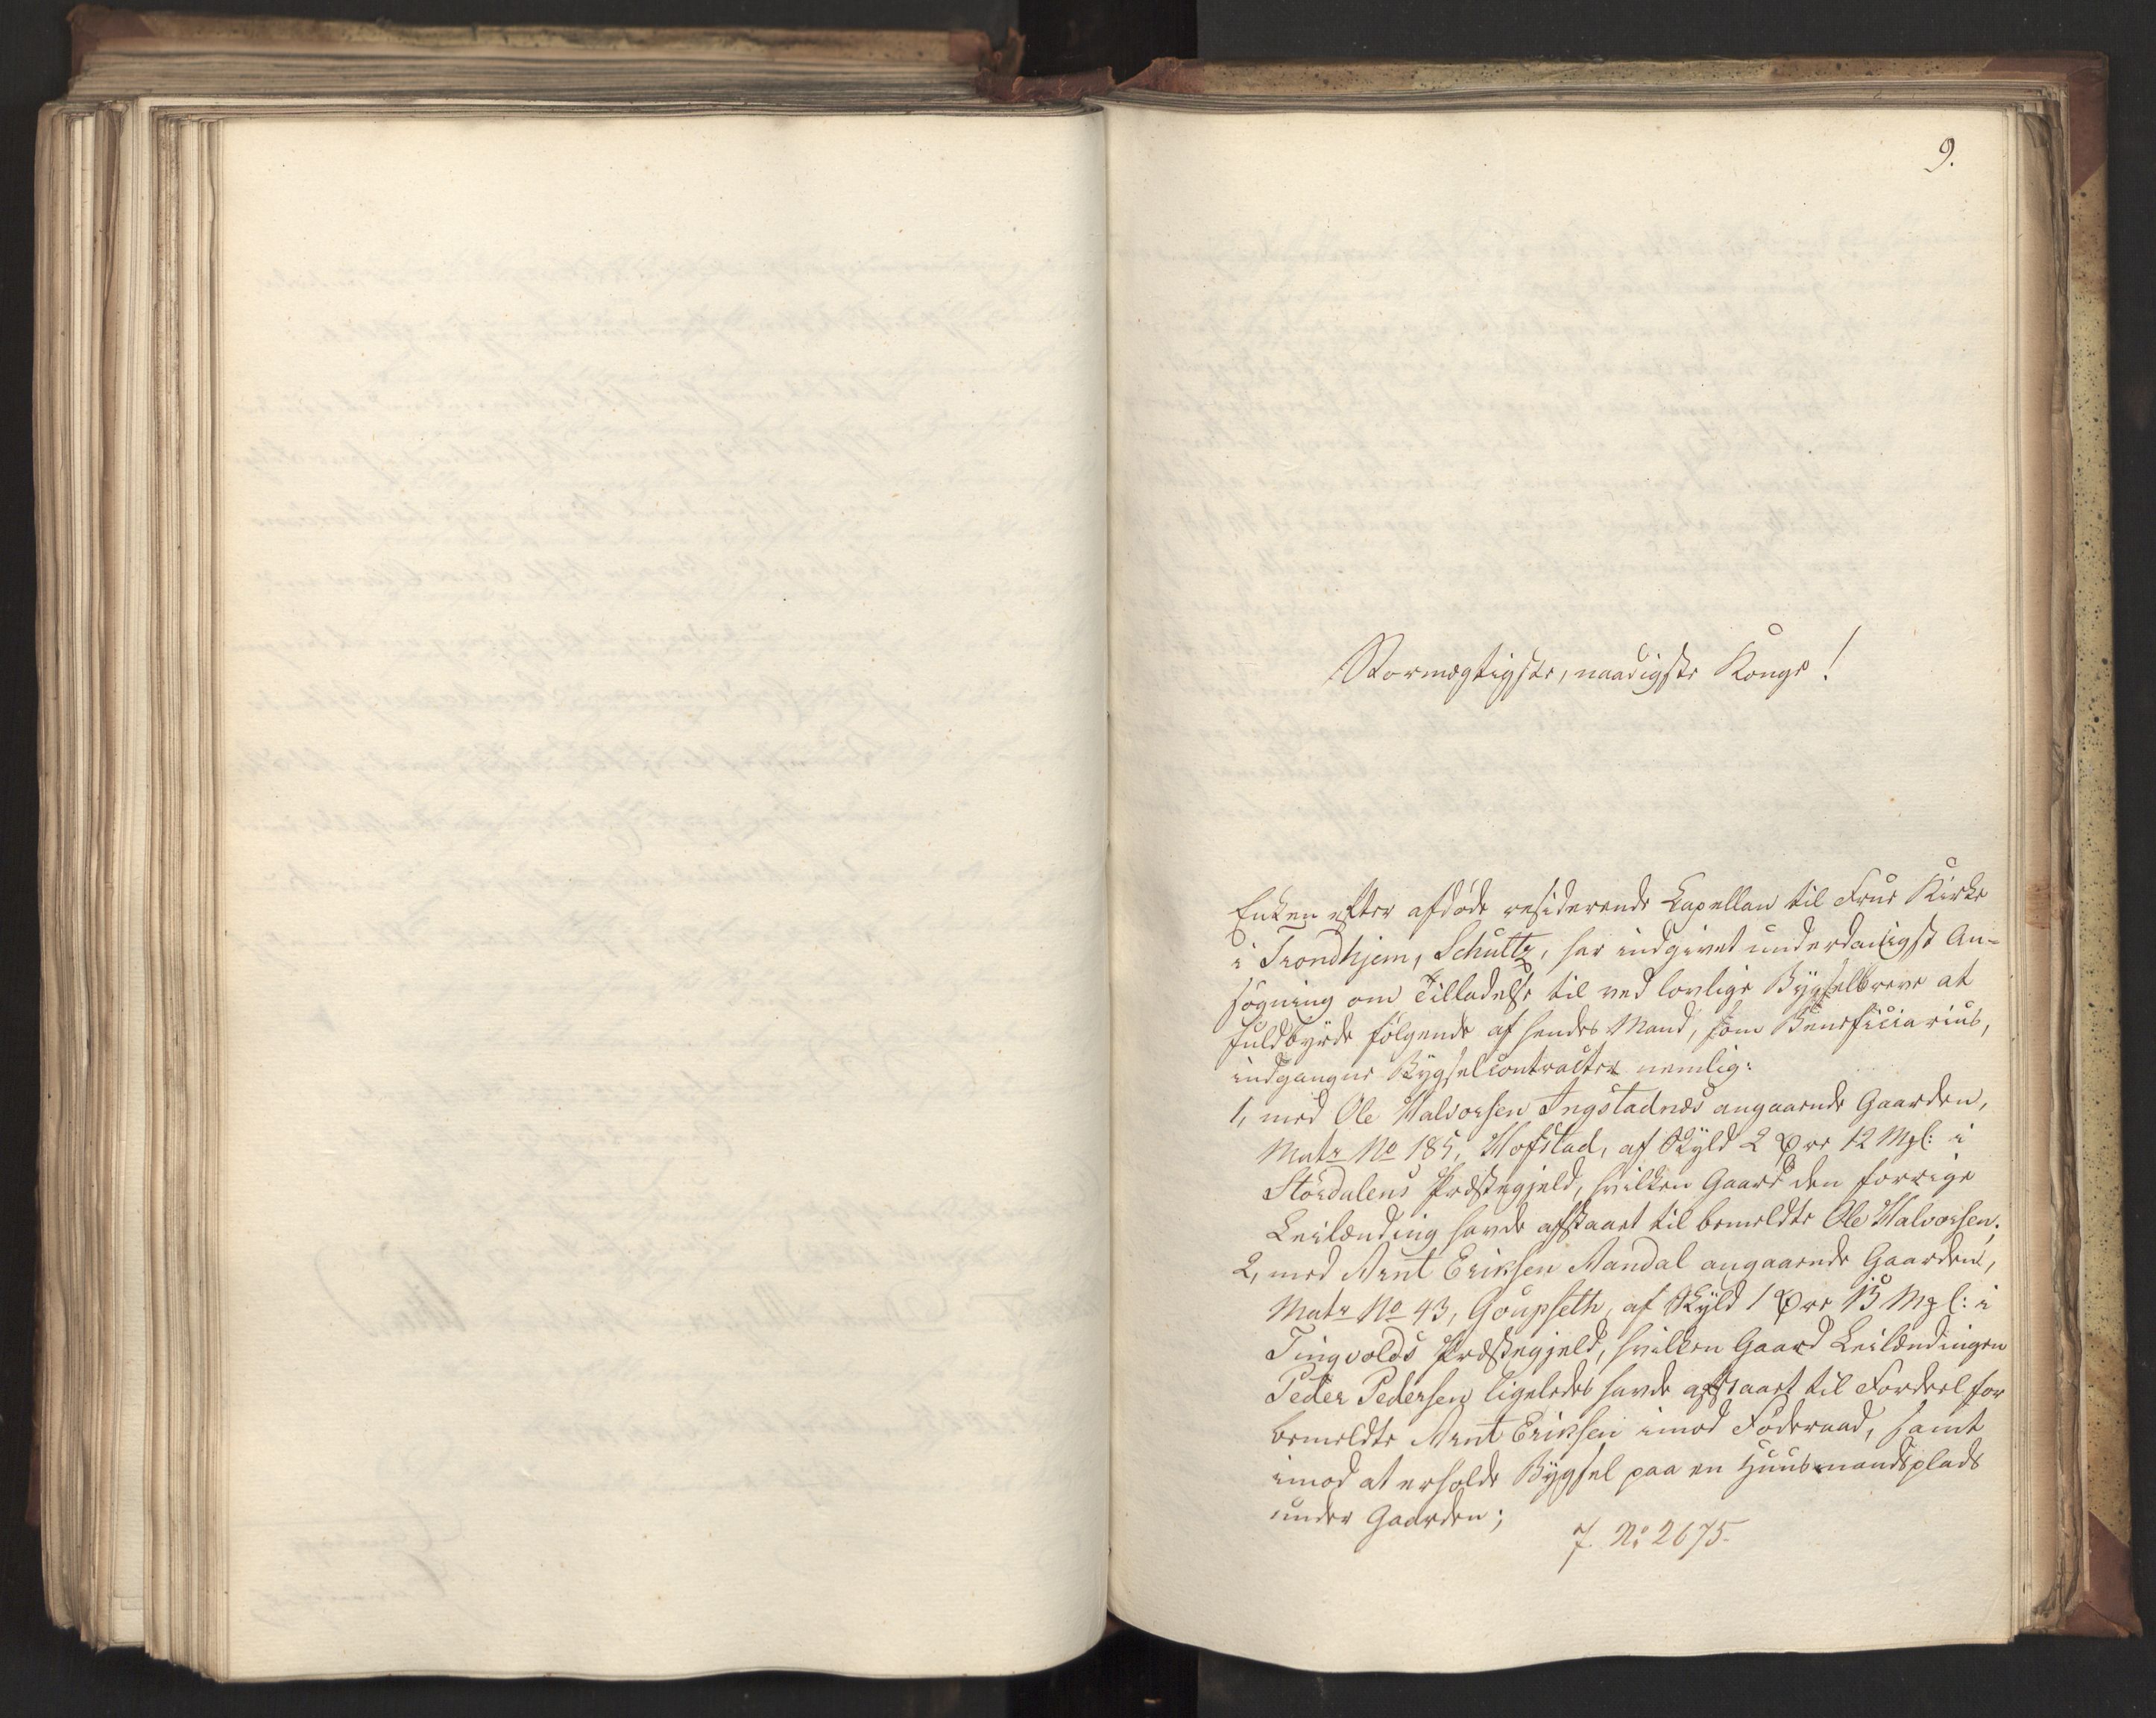 9.
Stormægtigste, naadigste Konge!
Enken efter afdøde residerende Capellan til Frue Kirke
i Trondhjem, Schultz, har indgivet underdanigst An-
søgning om Tilladelse til ved lovlige Bygselbreve at
fuldbyrde følgende af hendes Mand, som Beneficiarius,
indgangne Bygselcontracter nemlig:
1, med Ole Halvorsen Ingstadnæs angaaende Gaarden,
Matr No 185, Hofstad, af Skyld 2 Øre 12 Mgl: i
Størdalens Præstegjeld, hvilken Gaard den forrige
Leilænding havde afstaaet til bemeldte Ole Halvorsen;
2, med Arnt Eriksen Aandal angaaende Gaarden,
Matr No 43, Goupseth, af Skyld 1 Øre 15 Mgl: i
Tingvolds Præstegjeld, hvilken Gaard Leilændingen
Peder Pedersen ligeledes havde afstaaet til Fordeel for
bemeldte Arnt Eriksen imod Føderaad, samt
imod at erholde Bygsel paa en Huusmandsplads
under Gaarden;
J. No 2675.